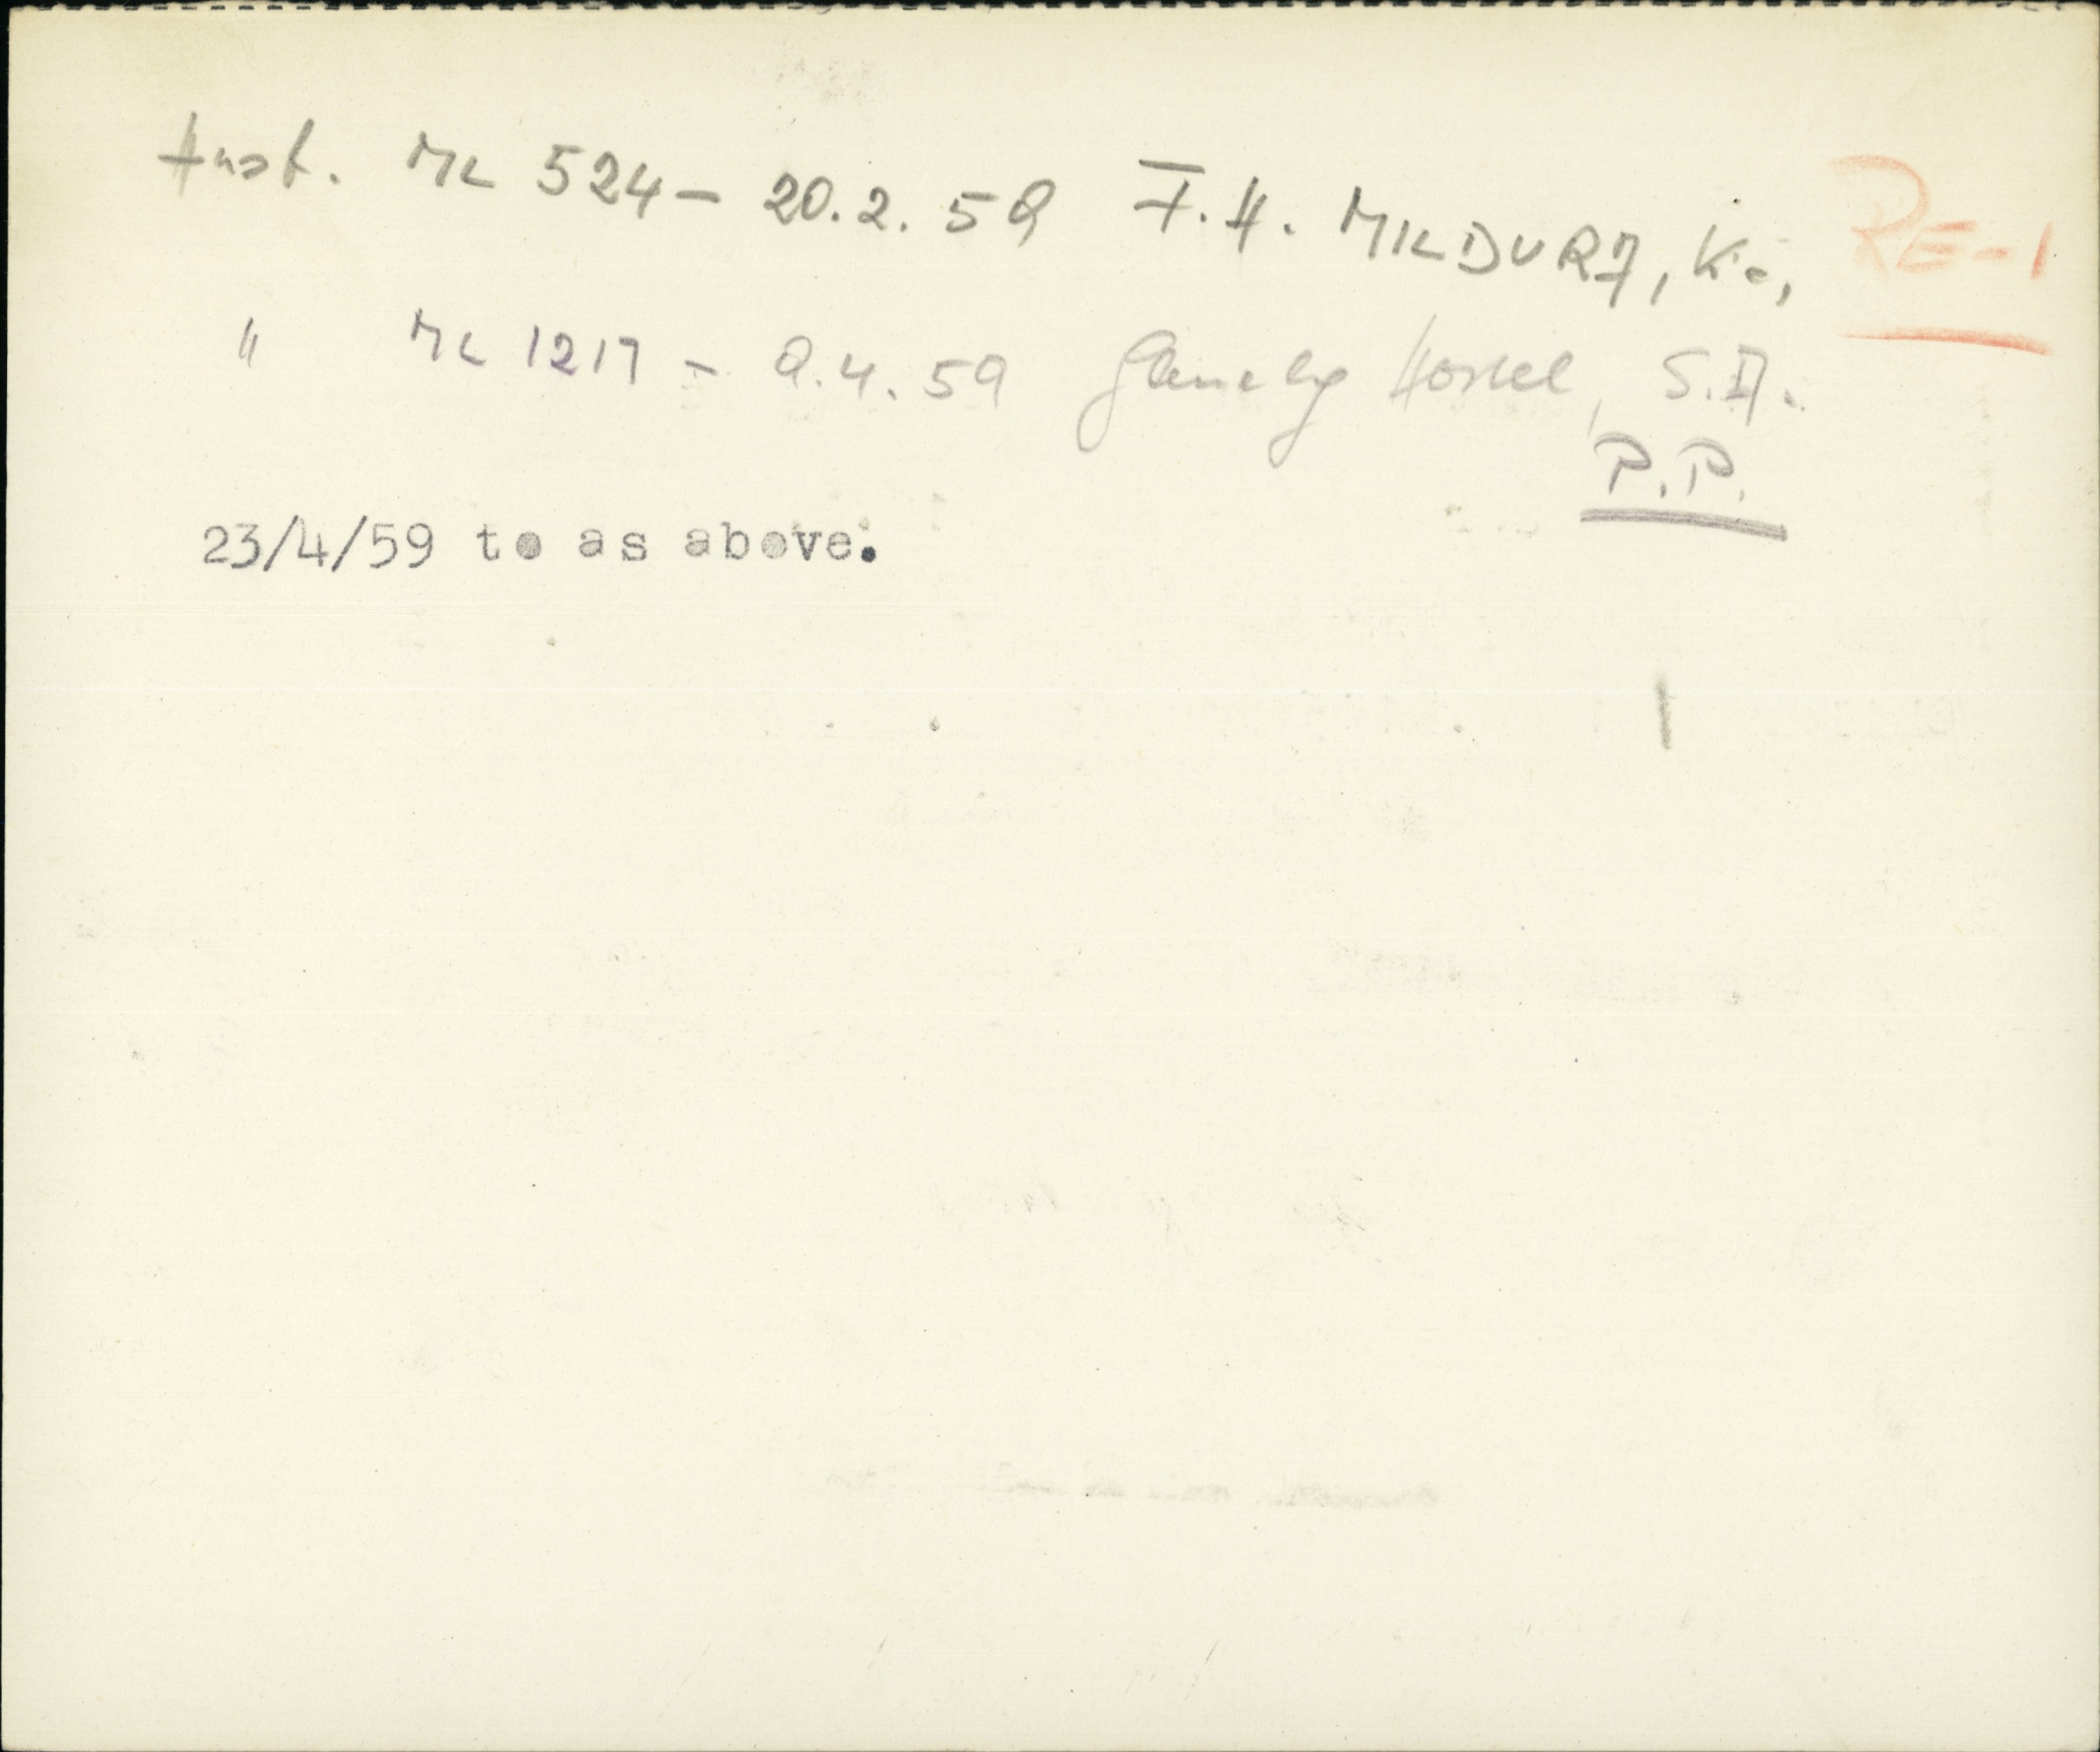 Aust. ML 524 - 20.2.59 F.H. MILDURA, Vic, RE-1
" ML 1217 - 9.4.59 Glenelg Hostel, S.A.
P.P.
23/4/59 to as above.